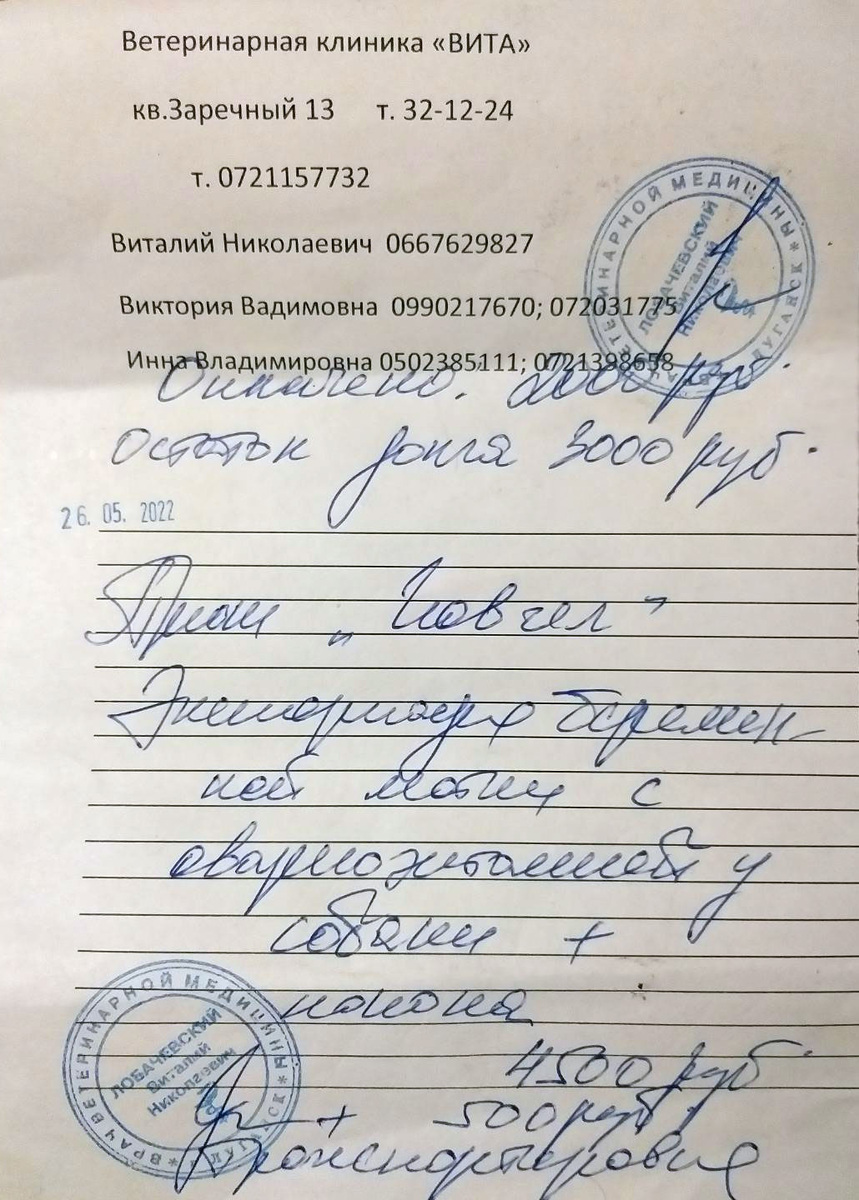 Ветеринарная клиника «ВИТА»
кв.Заречный 13 т. 32-12-24
т. 0721157732
Виталий Николаевич 0667629827
Виктория Вадимовна 0990217670; 072031775
Инна Владимировна 0502385111; 0721398658
ВЕТЕРИНАРНОЙ МЕДИЦИНЫ * ЛУГАНСК
ЛОБАЧЕВСКИЙ
Виталий
Николаевич
Оплачено. 2000 руб.
Остаток долга 3000 руб.
26. 05. 2022
Приют
Экстирпация беремен-
ной матки с
овариоэктомией у
собаки +
попона
4500 руб
+ 500 руб.
транспортировка
* ВРАЧ ВЕТЕРИНАРНОЙ МЕДИЦИНЫ *
ЛОБАЧЕВСКИЙ
Виталий
Николаевич